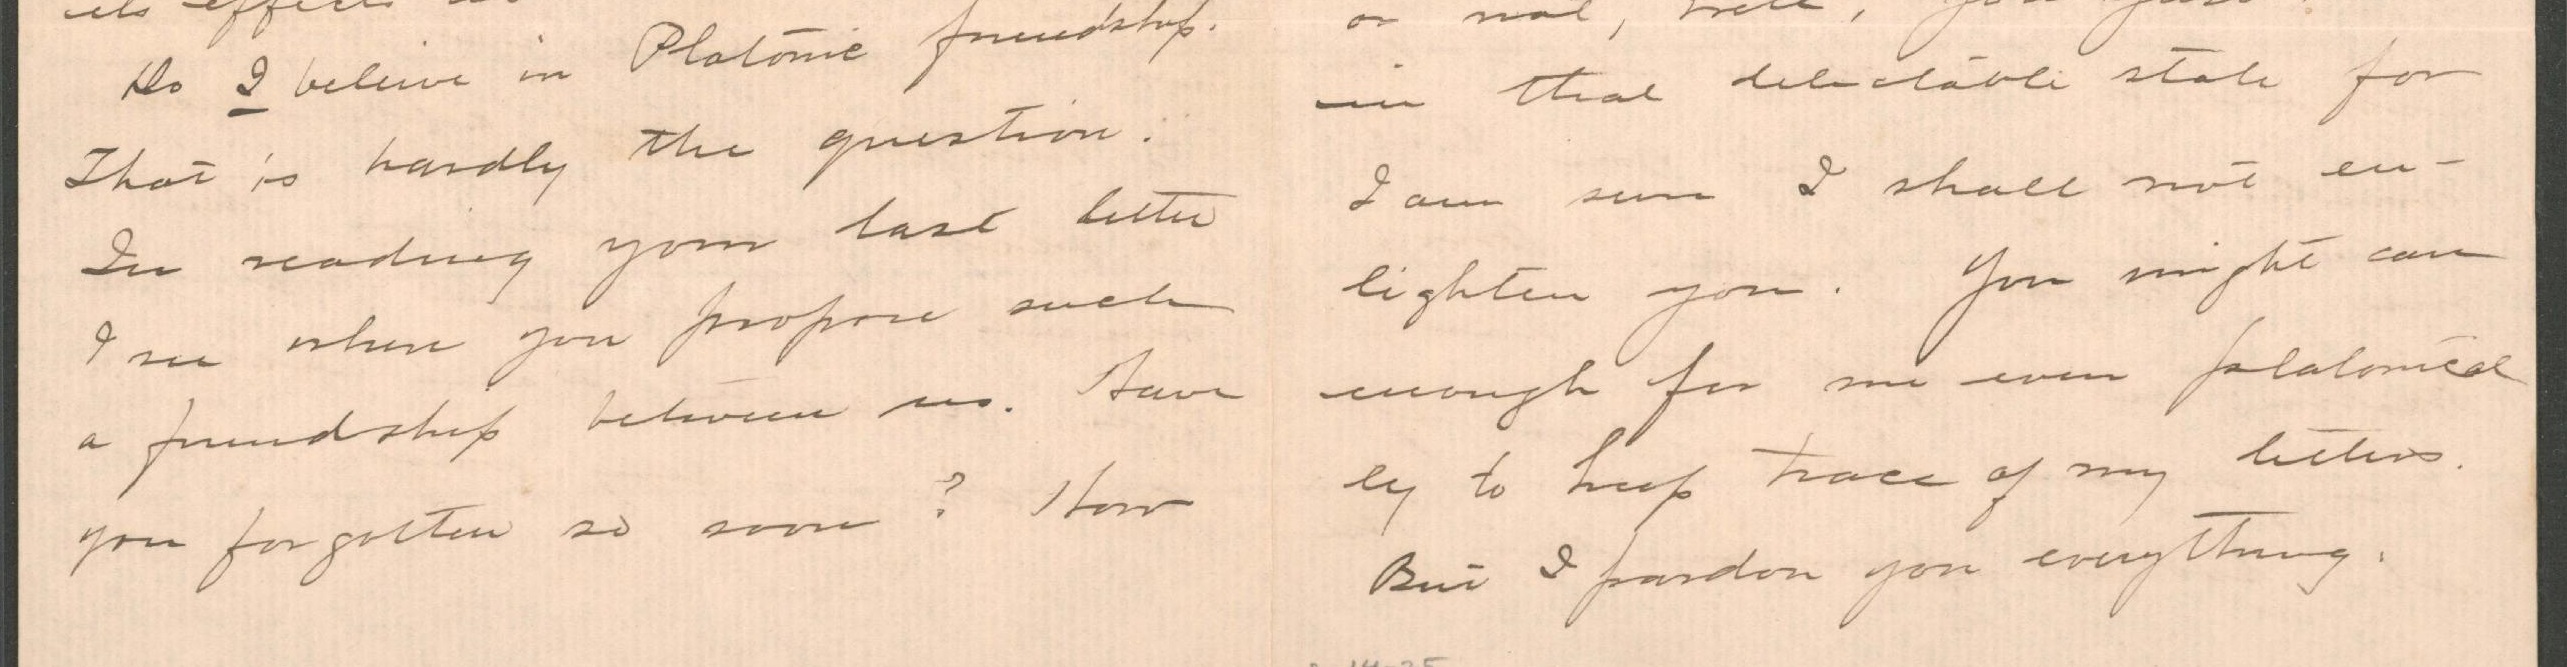 its effects
Do I believe in Platonic friendship.
That is hardly the question.
In reading your last letter
I see where you propose such
a friendship between us. Have
you forgotten so soon? How
or not, well,
in that delectable state for
I am sure I shall not en-
lighten you. You might care
enough for me even platonical
ly to keep trace of my letters.
But I pardon you everything.